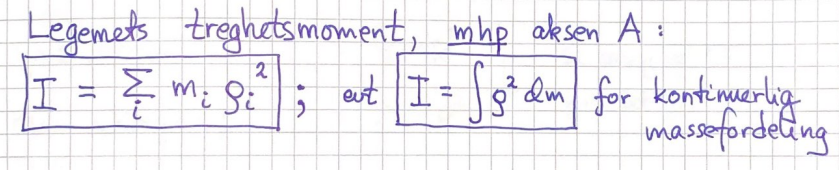 Legemets treghetsmoment, mhp aksen A :
I = ∑ᵢ mᵢ ρᵢ² ; evt I = ∫ρ² dm for kontinuerlig
massefordeling